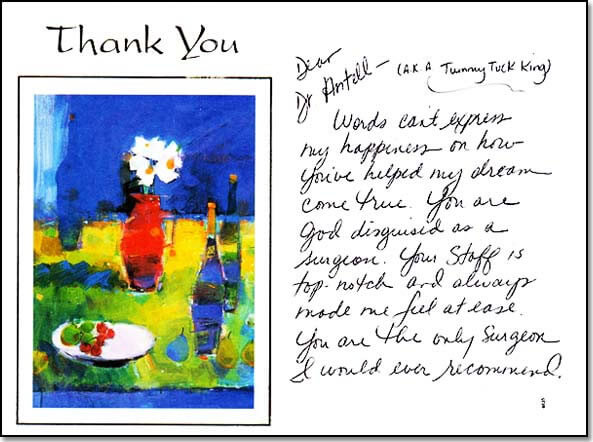 Thank You
Dear
Dr Antell - (A.K.A Tummy Tuck King)
Words can't express
my happiness on how
you've helped my dream
come true. You are
God disguised as a
surgeon. Your Staff is
top-notch and always
made me feel at ease.
You are the only Surgeon
I would ever recommend.